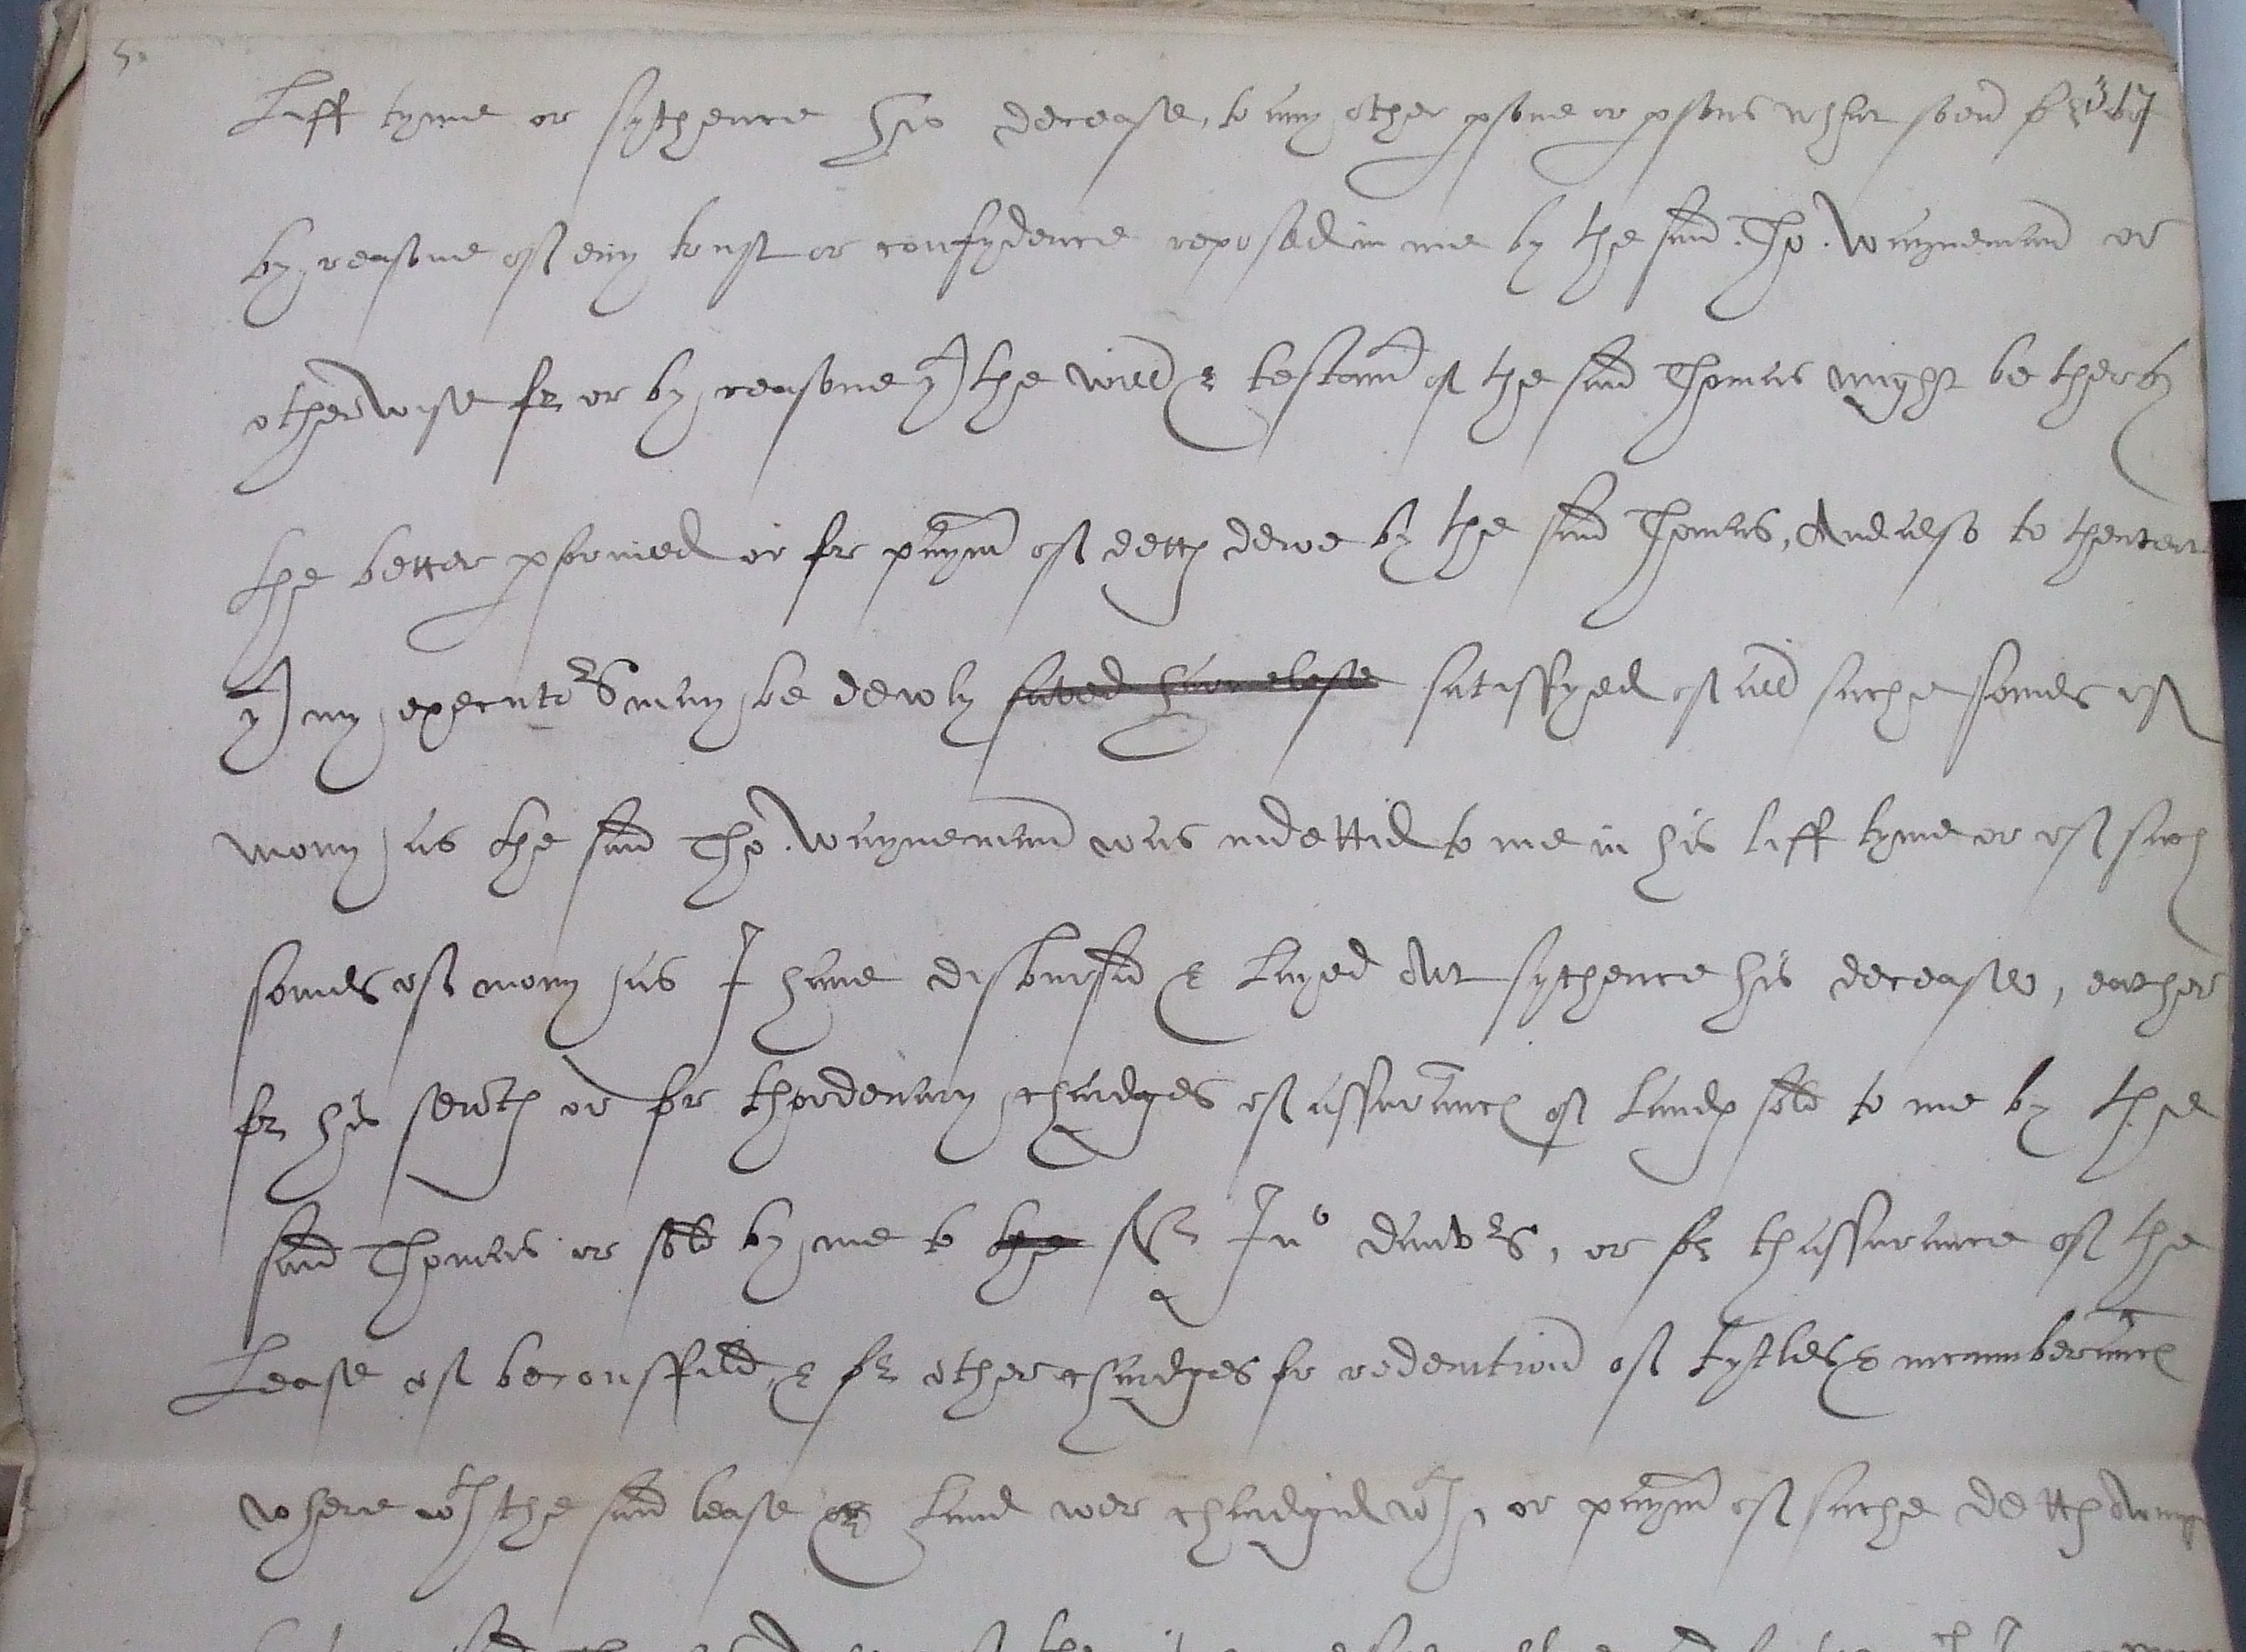 Liff tyme or sythence his decease, to any other psone or psons what soeu
by reasone of eny trust or confydence reposed in me by the said Tho. Waynemand or
otherwise for or by reasone yt the will & testamt of the said Thomas might be therby
the better pformed or for paymt of detts dewe by the said Thomas, And also to thentent
yt my executors may be dewly saved harmelesse satisfyed of all suche somes of
mony as the said Tho. Waynemand was indettid to me in his liff tyme or of such
somes of mony as I haue disboursid & layed out sythence his decease, eather
for his seruts or for thordenary chardges of assurancs of lands sold to me by the
said Thomas or sold by me to the Sr Jno dauers, or for thassurance of the
Lease of beconsfild, & for other chardges for redemtion of tytles & incumberancs
where wt the said lease & land wer chardgid wt, or paymt of suche detts owing